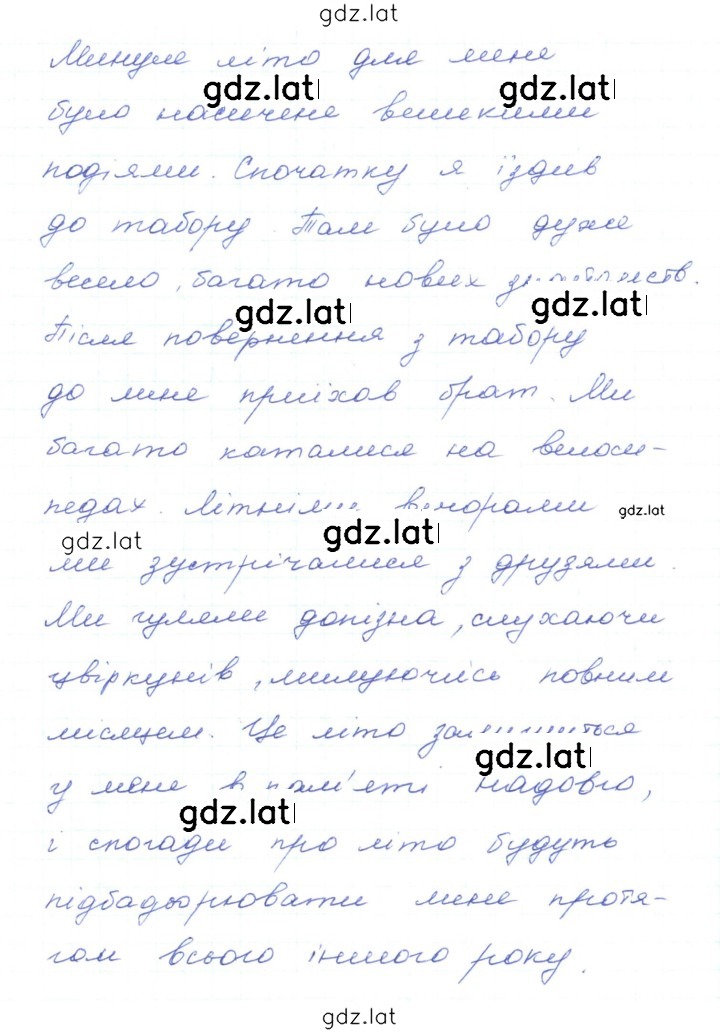 gdz.lat
Минуле літо для мене
gdz.lat gdz.lat
було насичене великими
подіями. Спочатку я їздив
до табору. Там було дуже
весело, багато нових
gdz.lat gdz.lat
Після повернення з табору
до мене приїхав брат. Ми
багато каталися на велоси-
педах. Літніми вечорами
gdz.lat gdz.lat gdz.lat
ми зустрічалися з друзями.
Ми гуляли допізна, слухаючи
цвіркунів, милуючись повним
місяцем. Це літо залишиться
gdz.lat
у мене в пам'яті надовго,
gdz.lat
і спогади про літо будуть
підбадьорювати мене протя-
гом всього іншого року.
gdz.lat